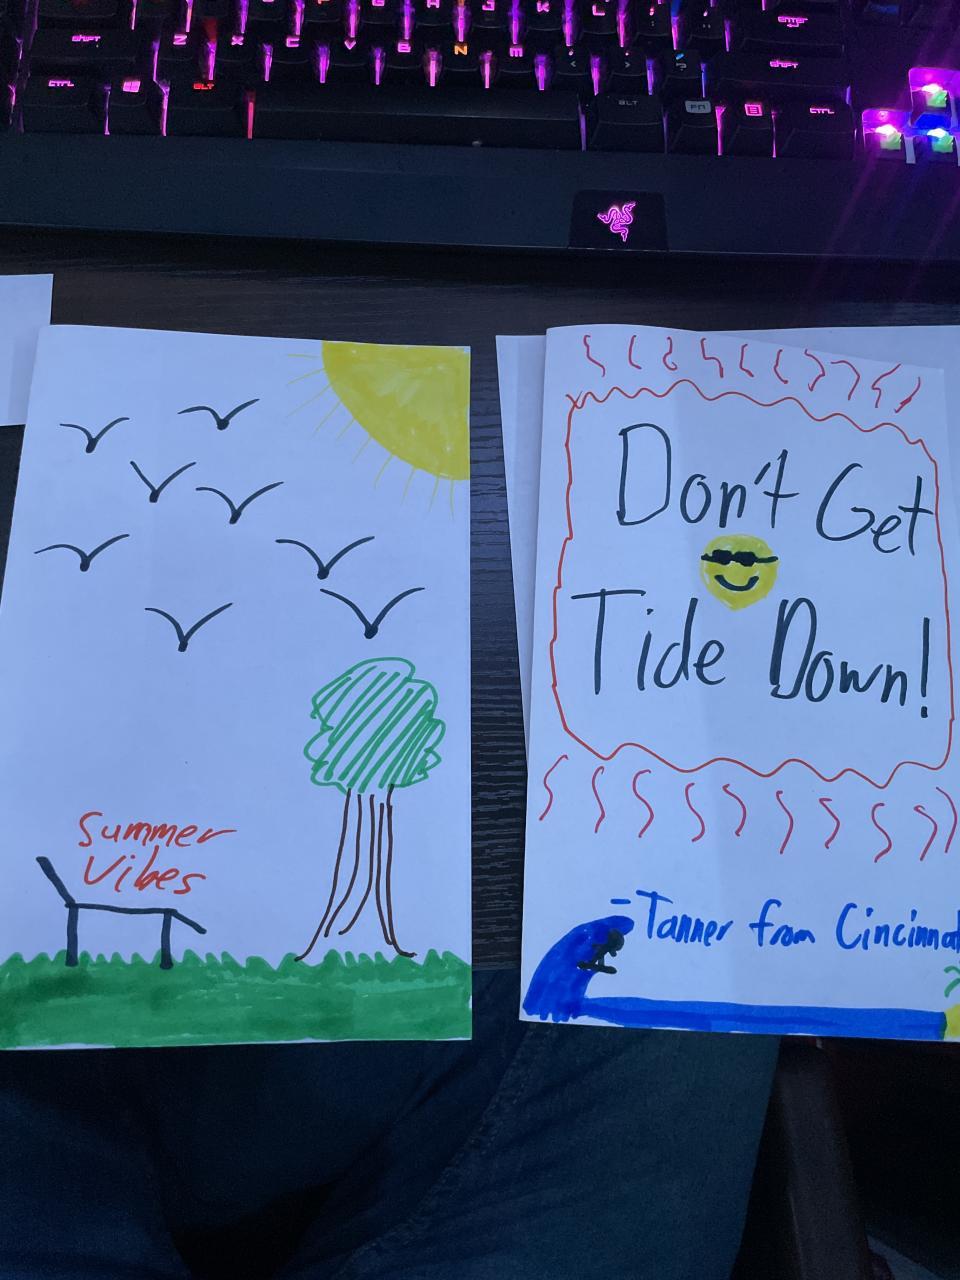 G H J K L
ENTER
SHIFT Z X C V B N M < > ? SHIFT
CTRL ALT ALT FN CTRL
Summer
Vibes
Don't Get
Tide Down!
-Tanner from Cincinnat